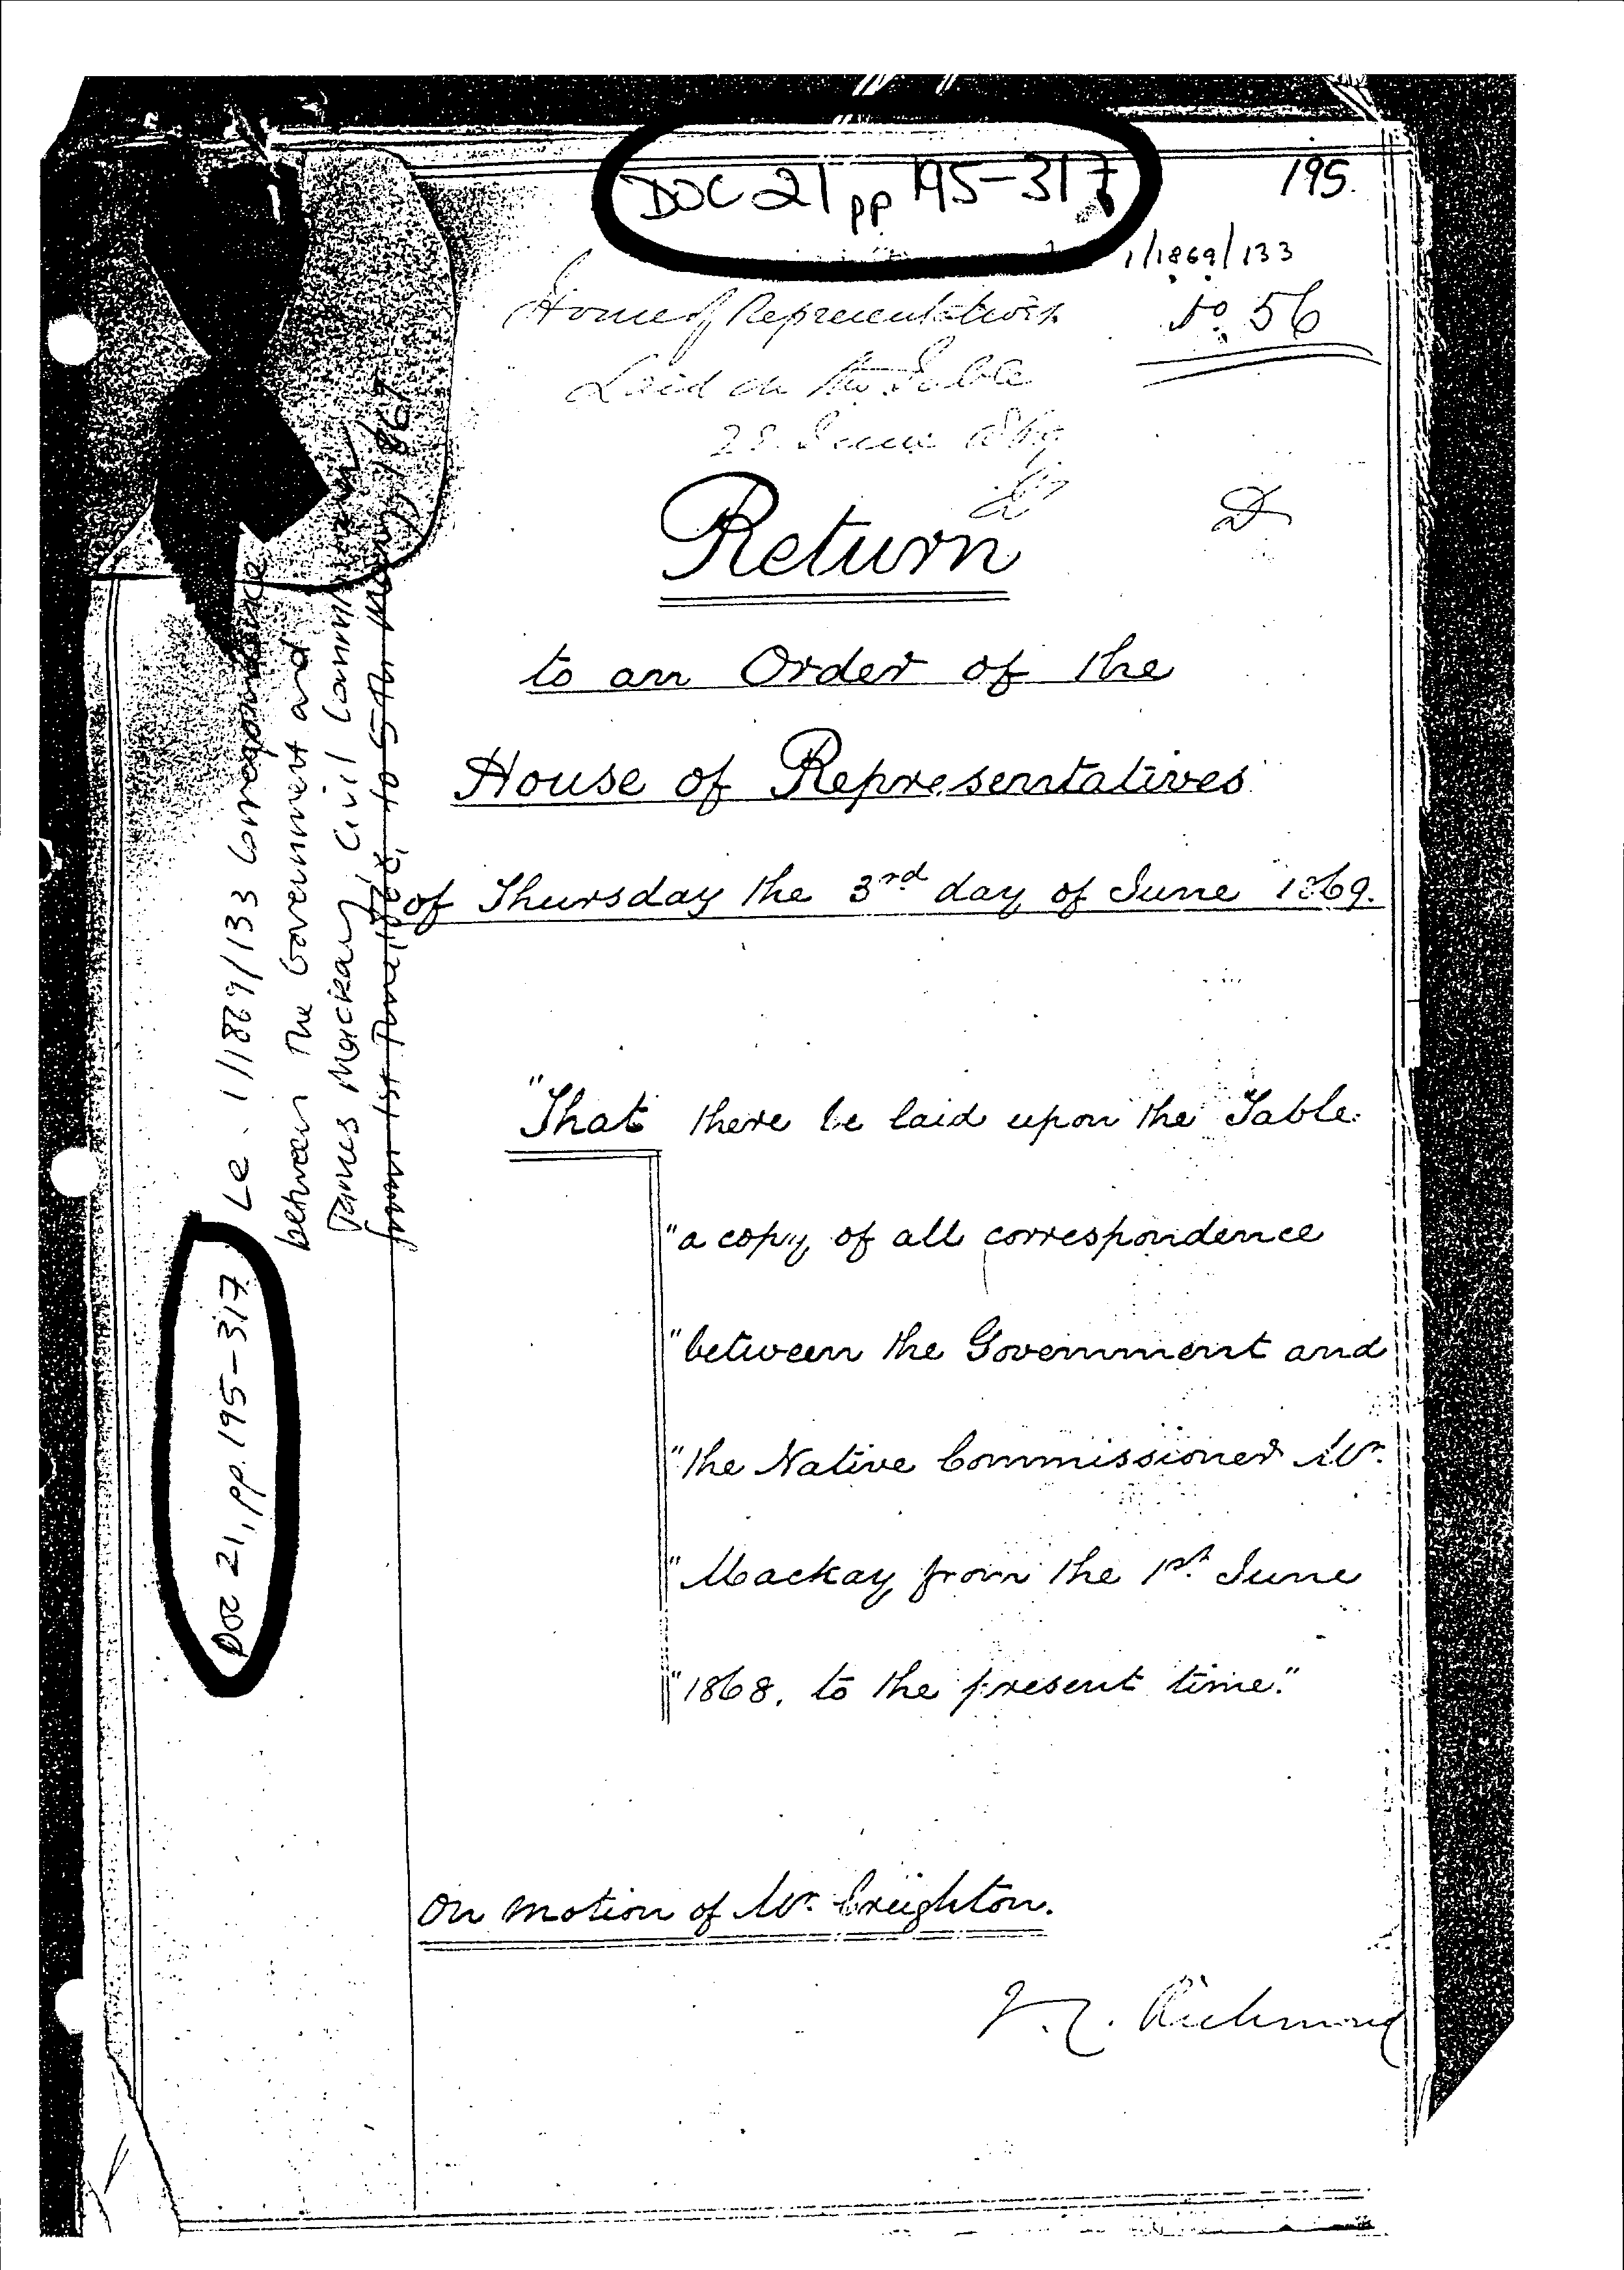 DOC 21 pp 195-317
195.
1/1869/133
House of Representatives
No. 56
Laid on the Table
28 June 1869
Return
to an Order of the
House of Representatives
of Thursday the 3rd day of June 1869.
"That there be laid upon the Table
"a copy of all correspondence
"between the Government and
"the Native Commissioner Mr.
"Mackay from the 1st June
"1868, to the present time."
On motion of Mr. Creighton.
J.C. Richmond
Doc 21, pp. 195-317
Le. 1/1869/133 Correspondence
between the Government and
James Mackay, Civil Commissioner
from 1st June 1868, to 5th May, 1869